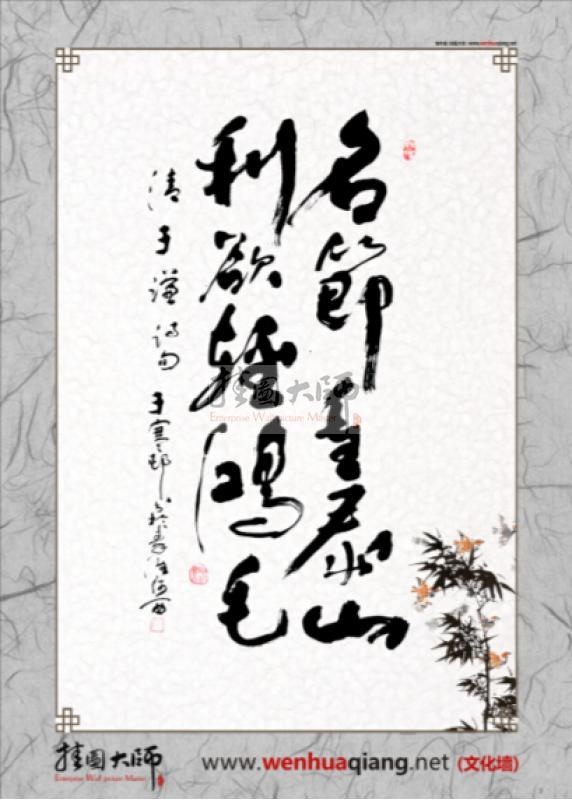 名節重泰山
利欲輕鴻毛
清于謙詩句
挂图大師
Enterprise Wall picture Master
挂图大師
Enterprise Wall picture Master
www.wenhuaqiang.net (文化墙)